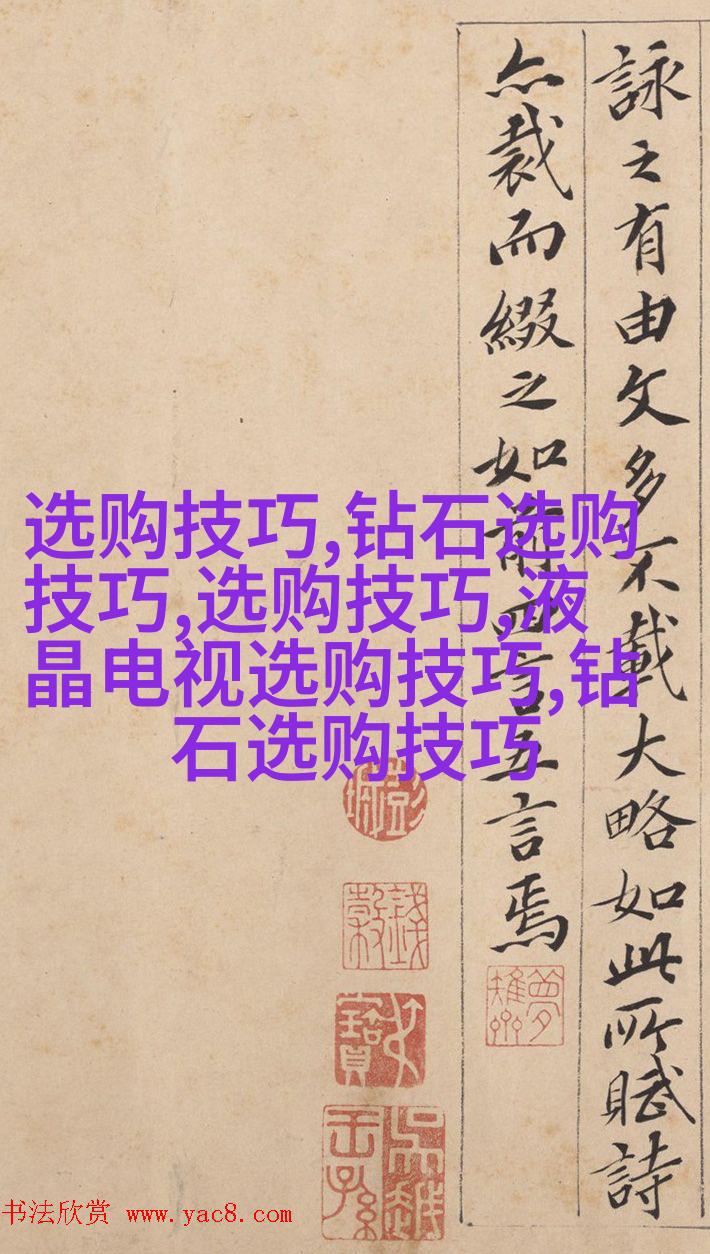 詠之有由文多不載大略如此所賦詩
亦裁而綴之如前四言五言焉
选购技巧,钻石选购
技巧,选购技巧,液
晶电视选购技巧,钻
石选购技巧
书法欣赏 www.yac8.com